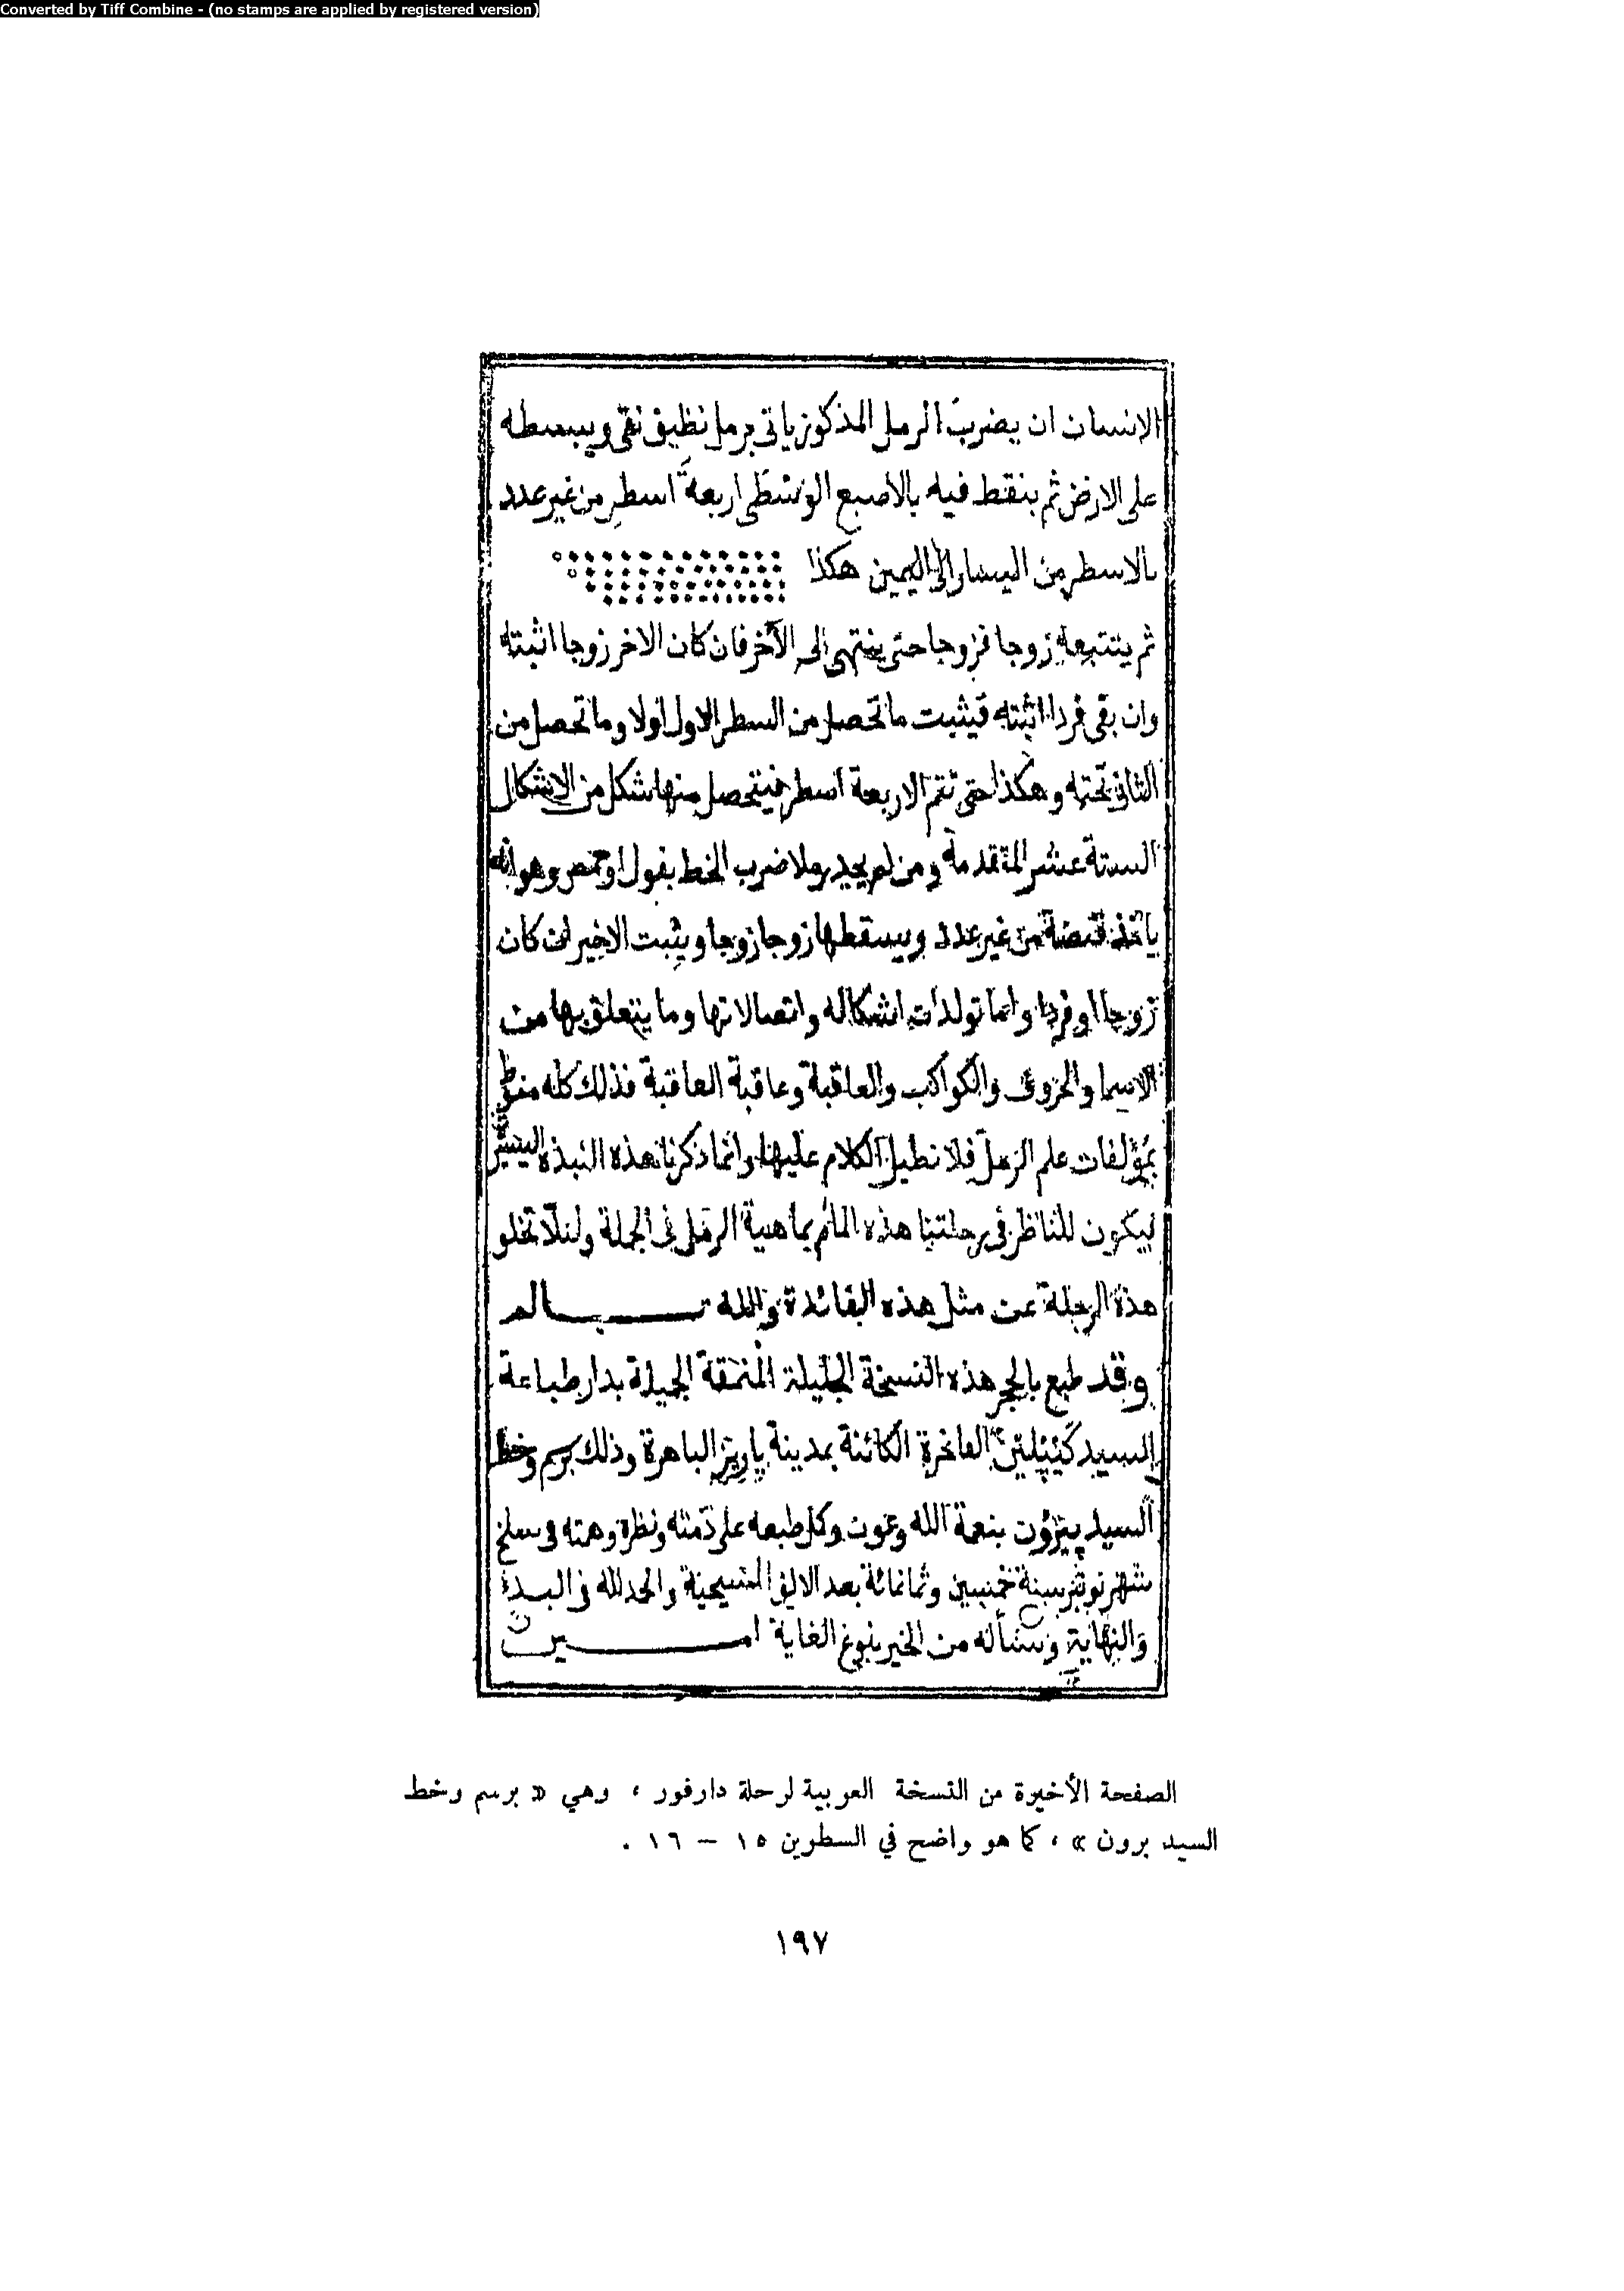 Converted by Tiff Combine - (no stamps are applied by registered version)
الانسان ان يضرب الرمل المذكور ياتى برمل نظيف نقى ويبسطه
على الارض ثم ينقط فيه بالاصبع الوسطى اربعة اسطر من غير عدد
بالاسطر من اليسار الى اليمين هكذا
ثم يتتبعه زوجا فزوجا حتى ينتهى الى الآخر فان كان الاخر زوجا اثبته
وان بقى فردا اثبته فيثبت ما تحصل من السطر الاول اولا وما تحصل من
الثانى تحته وهكذا حتى تتم الاربعة اسطر فيتحصل منها شكل من الاشكال
الستة عشر المتقدمة ومن لم يجد رملا ضرب الخط بفول او حمص وهو انه
ياخذ قبضة من غير عدد ويسقطها زوجا زوجا ويثبت الاخير ان كان
زوجا او فردا واما تولدات اشكاله واتصالاتها وما يتعلق بها من
الاسما والحروف والكواكب والعاقبة وعاقبة العاقبة فذلك كله منوط
بمؤلفات علم الرمل فلا نطيل الكلام عليها وانما ذكرنا هذه النبذة اليسيرة
ليكون للناظر فى رحلتنا هذه المام بماهية الرمل فى الجملة ولئلا تخلو
هذه الرحلة عن مثل هذه الفائدة والله
وقد طبع بالحجر هذه النسخة الجليلة المنمقة الجميلة بدار طباعة
السيد كنيپلين الفاخرة الكائنة بمدينة پاريز الباهرة وذلك برسم وخط
السيد پيرون بنعمة الله وعون وكل طبعه على ذمته ونظره وهمته فى سلخ
شهر نونبر سنة خمسين وثمانمائة بعد الالف المسيحية والحمد لله فى البدء
والنهاية ونسأله من الخير بلوغ الغاية امين
الصفحة الأخيرة من النسخة العربية لرحلة دارفور ، وهي « برسم وخط
السيد برون » ، كما هو واضح في السطرين ١٥ – ١٦ .
١٩٧